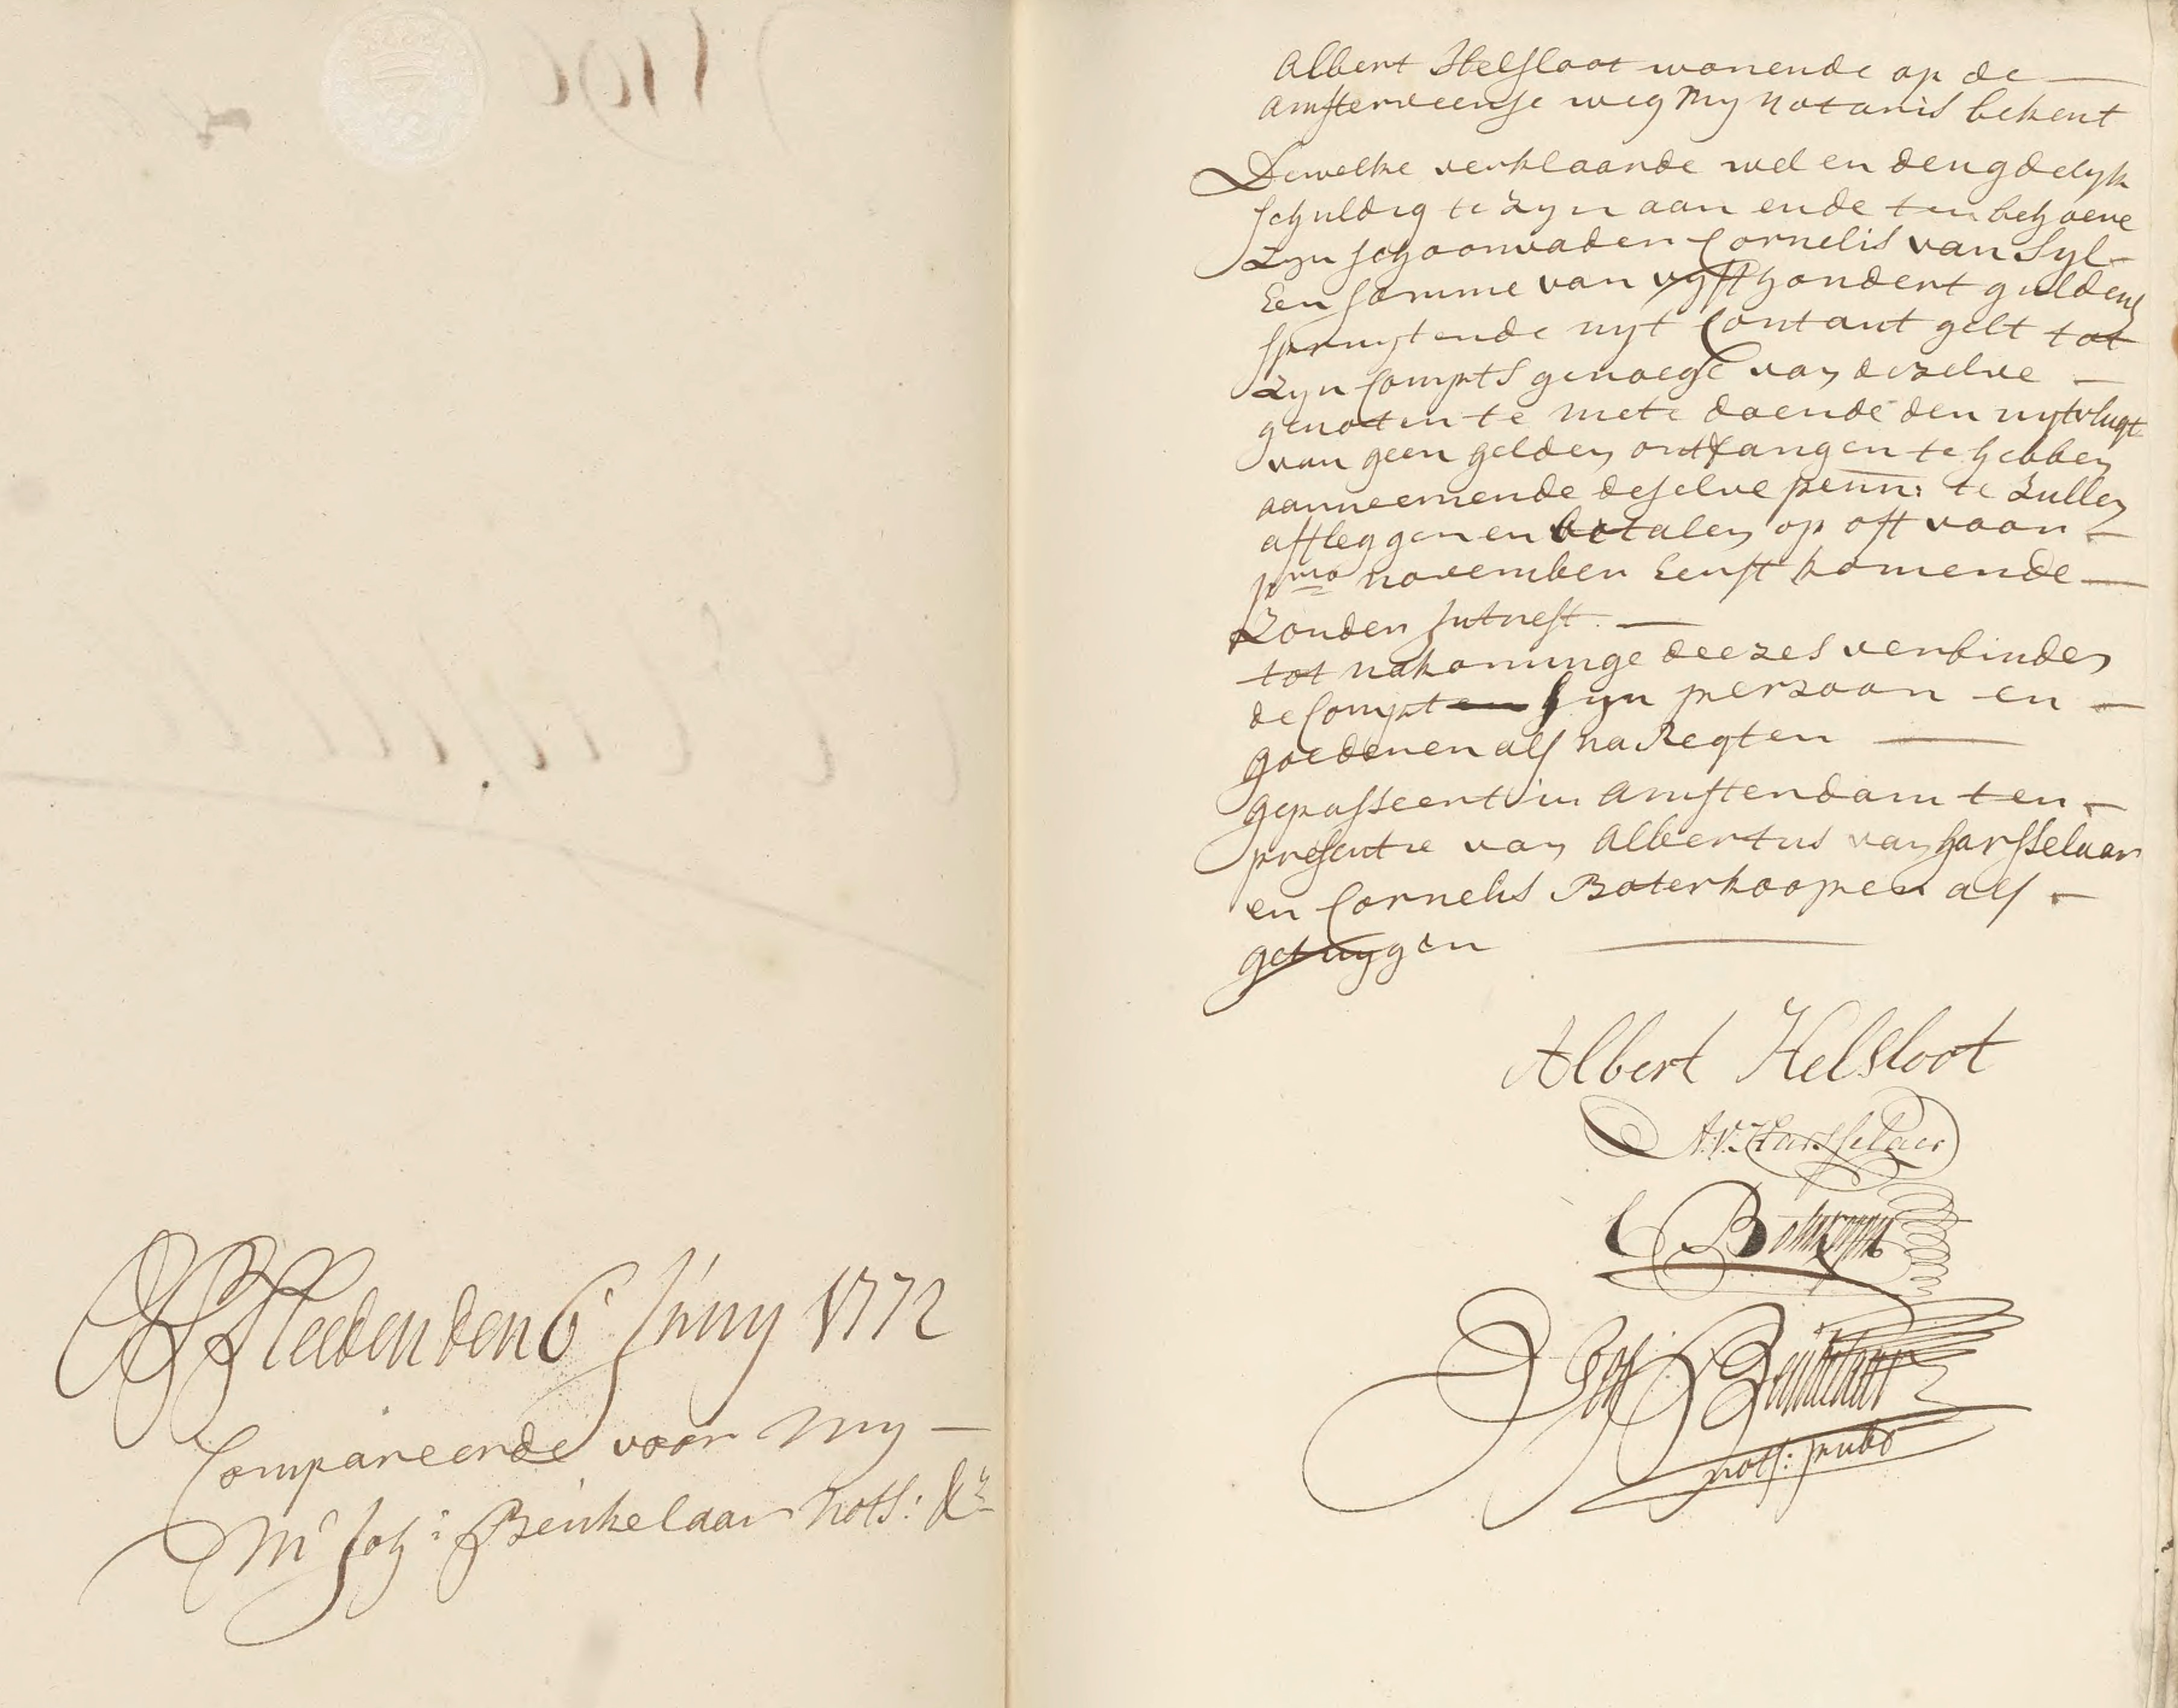 Op Heeden den 6 Juny 1772
Compareerde voor my —
Mr Joh: Beukelaar nots: &a
Albert Helsloot wonende op de —
amsterveense weg My Notaris bekent
Dewelke verklaarde wel en deugdelyk
schuldig te zyn aan ende ten behoeve
zyn schoonvader Cornelis van Syl —
Een somme van vyfthondert guldens
spruytende uyt Contant gelt tot
zyn Compts genoege van dezelve —
genoten te mete doende den uytvlugt
van geen gelden ontfangen te hebben
aanneemende deselve penn: te zullen
aftleggen en betalen op oft voor —
pmo november Eerst komende —
zonder Intrest. —
tot nakominge deezes verbinden
de Compt syn persoon en —
goederen als na Regten —
gepasseert in Amsterdam ten —
presentie van Albertus van harsselaar
en Cornelis Boterkooper als —
getuygen —
Albert Helsloot
A: V: Harsselaer
C Boterkooper
Joh: Beukelaar
nots: publ